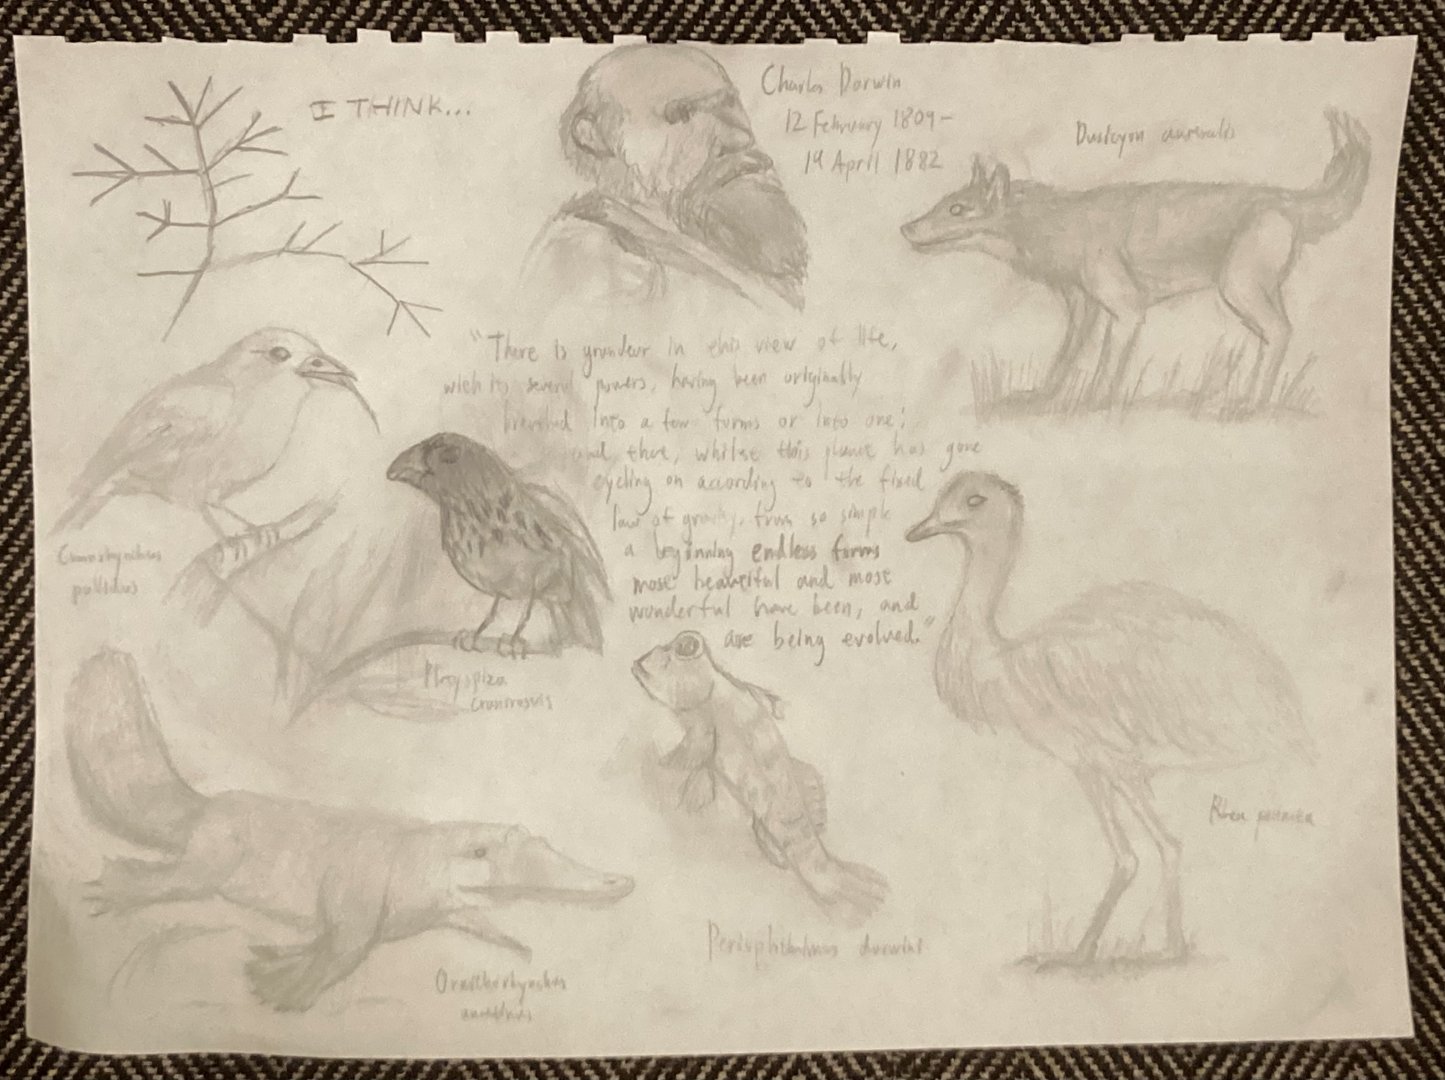 I THINK...
Charles Darwin
12 February 1809-
19 April 1882
Dusicyon australis
"There is grandeur in this view of life,
with its several powers, having been originally
breathed into a few forms or into one;
and that, whilst this planet has gone
cycling on according to the fixed
law of gravity, from so simple
a beginning endless forms
most beautiful and most
wonderful have been, and
are being evolved."
pallidus
Platyspiza
crassirostris
Rhea pennata
Periophthalmus darwini
Ornithorhynchus
anatinus